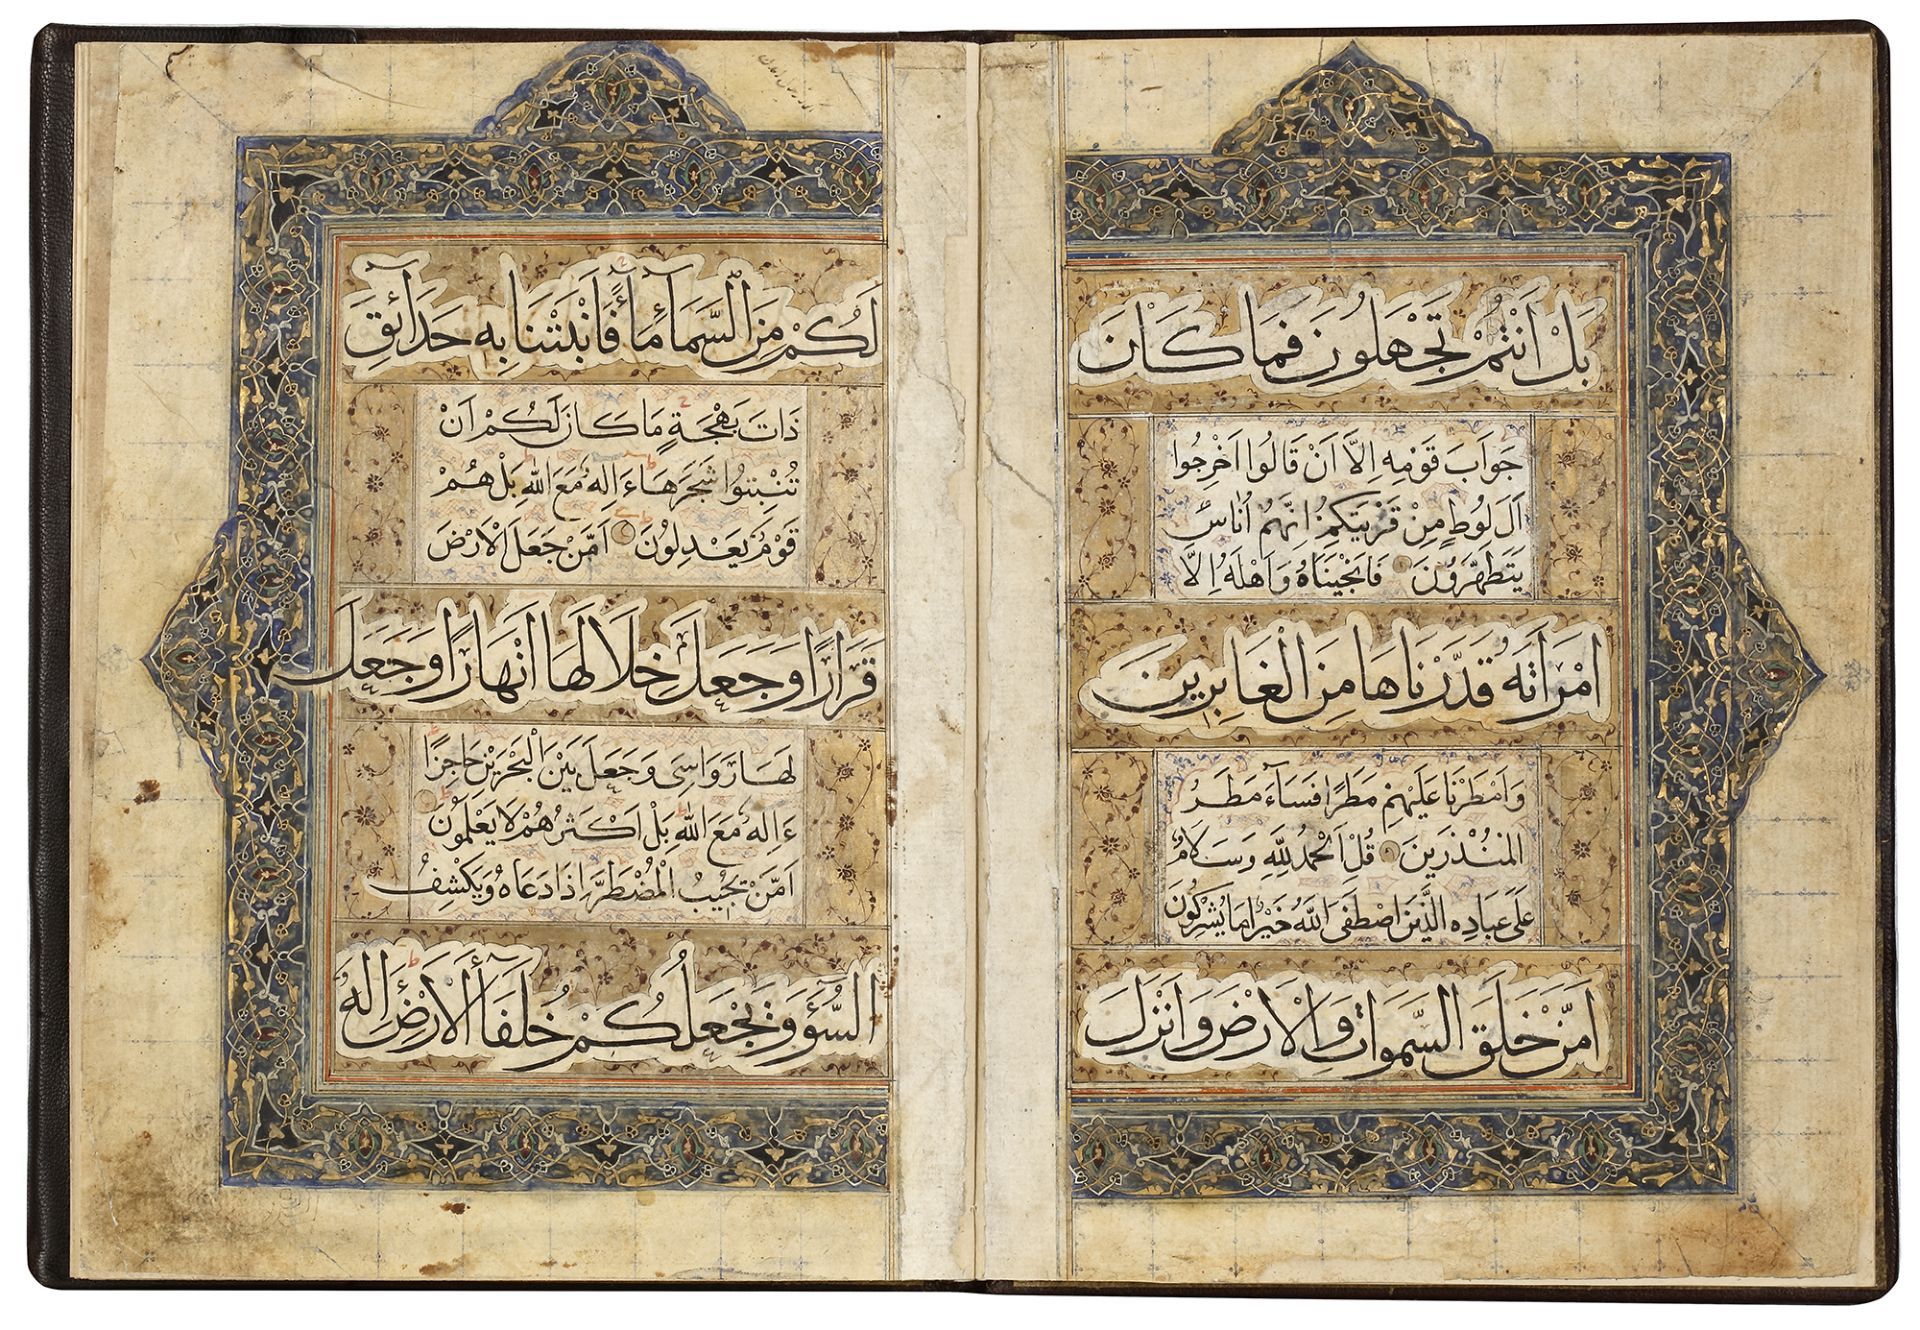 بَلْ اَنْتُمْ تَجْهَلُونَ فَمَا كَانَ
جَوَابَ قَوْمِهِ اِلَّا اَنْ قَالُوا اَخْرِجُوا
اٰلَ لُوطٍ مِنْ قَرْيَتِكُمْ اِنَّهُمْ اُنَاسٌ
يَتَطَهَّرُونَ فَاَنْجَيْنَاهُ وَاَهْلَهُ اِلَّا
امْرَاَتَهُ قَدَّرْنَاهَا مِنَ الْغَابِرِينَ
وَاَمْطَرْنَا عَلَيْهِمْ مَطَرًا فَسَآءَ مَطَرُ
الْمُنْذَرِينَ قُلِ الْحَمْدُ لِلّٰهِ وَسَلَامٌ
عَلَى عِبَادِهِ الَّذِينَ اصْطَفَى اللّٰهُ خَيْرٌ اَمَا يُشْرِكُونَ
اَمَّنْ خَلَقَ السَّمَوَاتِ وَالْاَرْضَ وَاَنْزَلَ
لَكُمْ مِنَ السَّمَآءِ مَآءً فَاَنْبَتْنَا بِهِ حَدَآئِقَ
ذَاتَ بَهْجَةٍ مَا كَانَ لَكُمْ اَنْ
تُنْبِتُوا شَجَرَهَا ءَاِلٰهٌ مَعَ اللّٰهِ بَلْ هُمْ
قَوْمٌ يَعْدِلُونَ اَمَّنْ جَعَلَ الْاَرْضَ
قَرَارًا وَجَعَلَ خِلَالَهَا اَنْهَارًا وَجَعَلَ
لَهَا رَوَاسِيَ وَجَعَلَ بَيْنَ الْبَحْرَيْنِ حَاجِزًا
ءَاِلٰهٌ مَعَ اللّٰهِ بَلْ اَكْثَرُهُمْ لَا يَعْلَمُونَ
اَمَّنْ يُجِيبُ الْمُضْطَرَّ اِذَا دَعَاهُ وَيَكْشِفُ
السُّوٓءَ وَيَجْعَلُكُمْ خُلَفَآءَ الْاَرْضِ ءَاِلٰهٌ